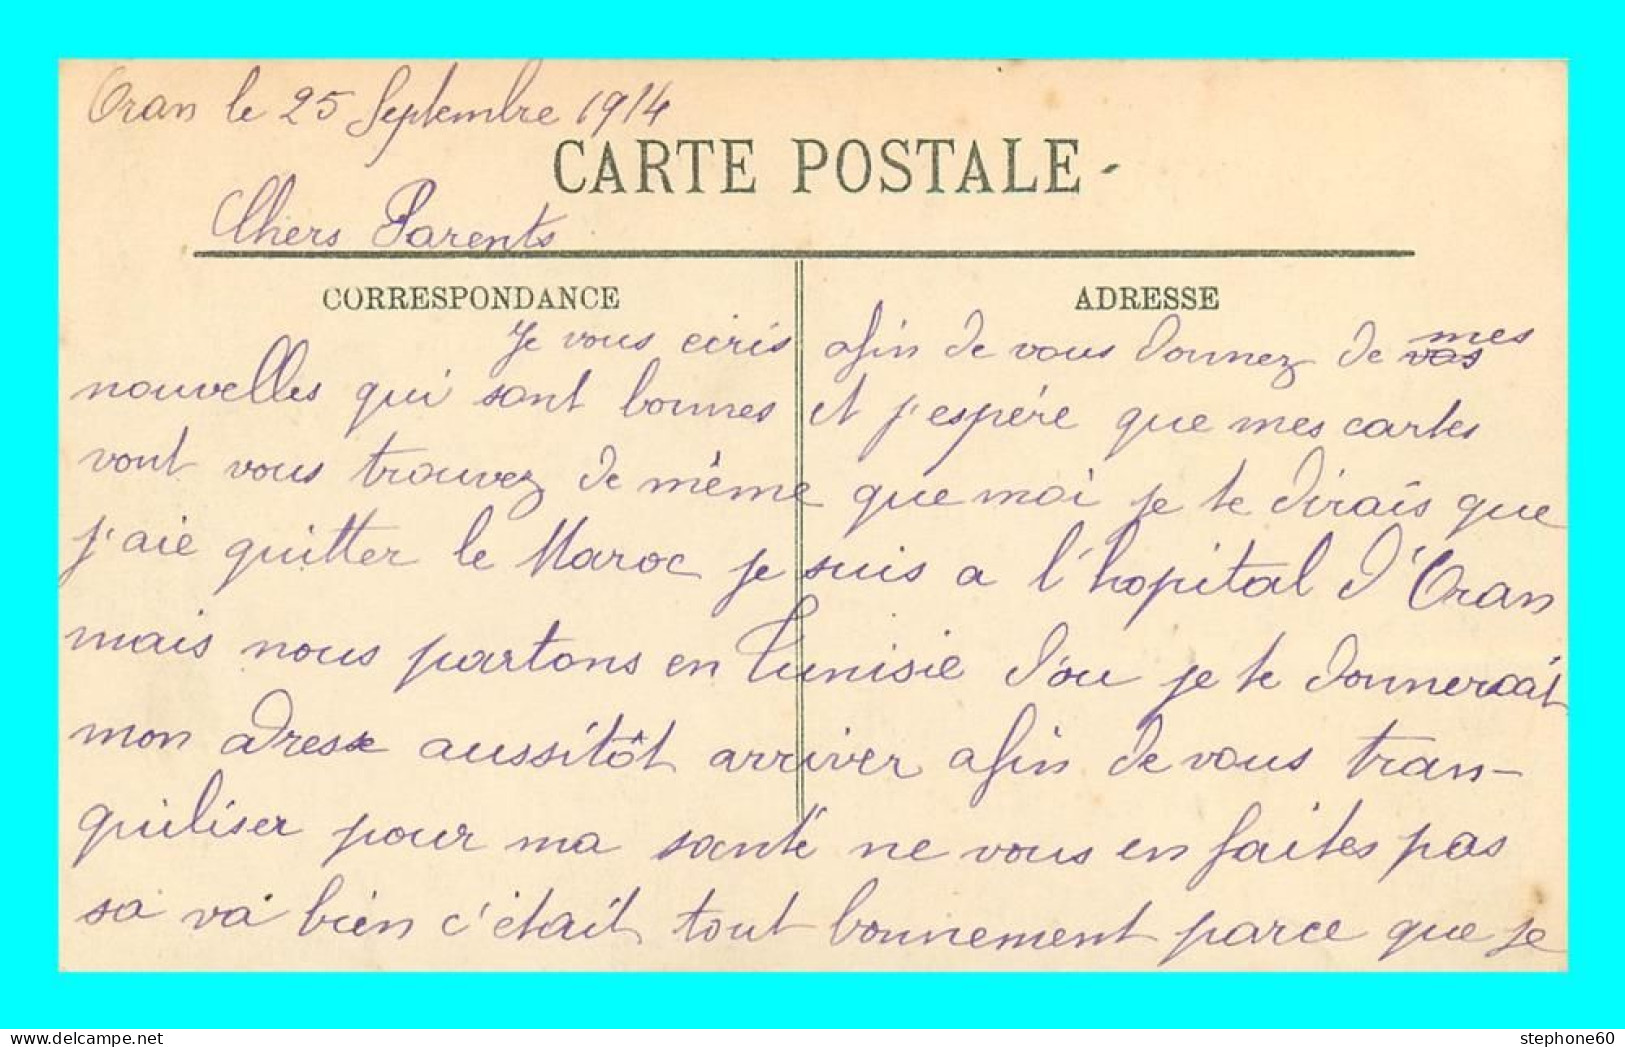 Oran le 25 Septembre 1914
CARTE POSTALE
Chers Parents
CORRESPONDANCE
ADRESSE
Je vous eciris afin de vous donnez de vos mes
nouvelles qui sont bonnes et j'espére que mes cartes
vont vous trouvez de même que moi je te dirais que
j'aie quitter le Maroc je suis a l'hopital d'Oran
mais nous partons en Tunisie d'ou je te donnerait
mon adresse aussitôt arriver afin de vous tran-
quiliser pour ma santé ne vous en faites pas
sa va bien c'était tout bonnement parce que je
stephone60